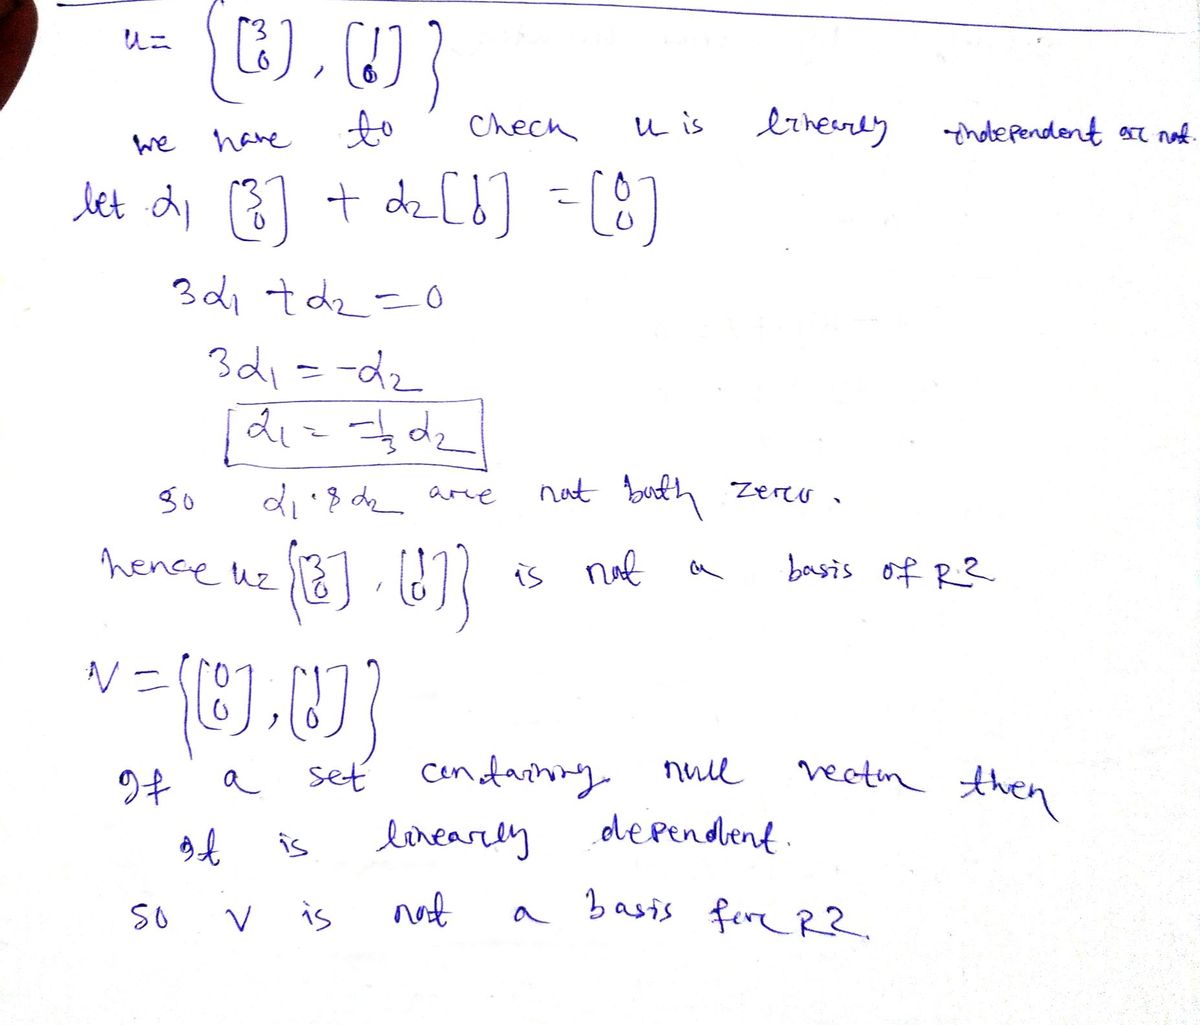 u = { [3 0], [1 0] }
we have to check u is linearly independent or not.
let α1 [3 0] + α2 [1 0] = [0 0]
3α1 + α2 = 0
3α1 = -α2
α1 = -1/3 α2
so α1 & α2 are not both zero.
hence u = { [3 0], [1 0] } is not a basis of R2
V = { [0 0], [1 0] }
If a set containing null vector then
It is linearly dependent.
so V is not a basis for R2.